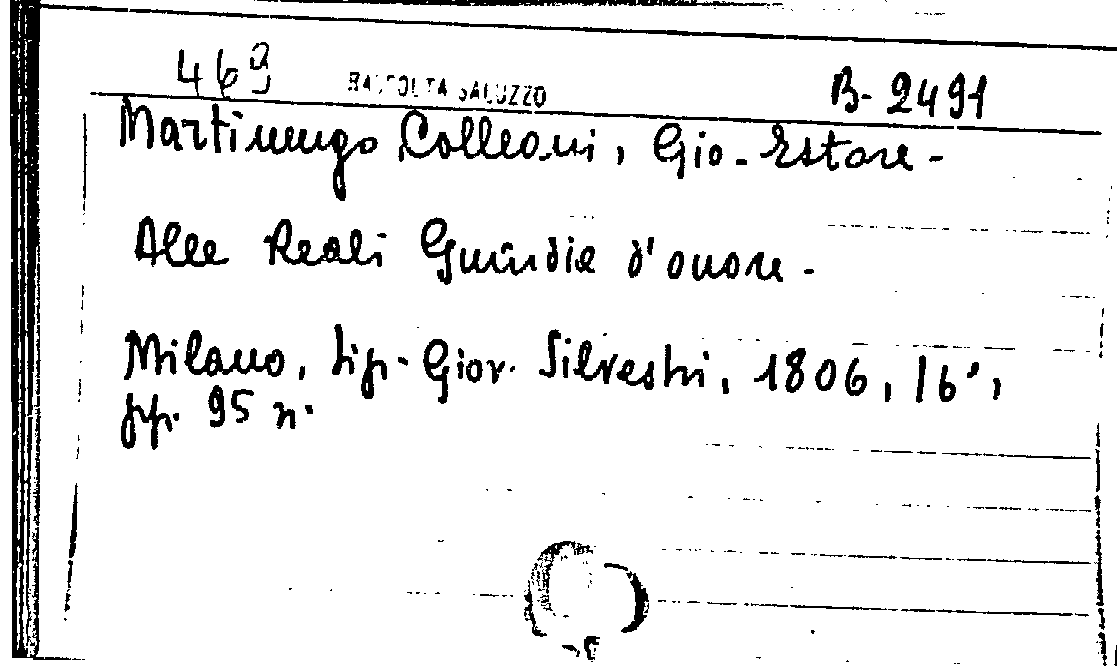 469 RACCOLTA SALUZZO B-2491
Martinengo Colleoni, Gio-Estore-
Alle Reali Guardie d'onore-
Milano, tip. Giov. Silvestri, 1806, 16°,
pp. 95 n.